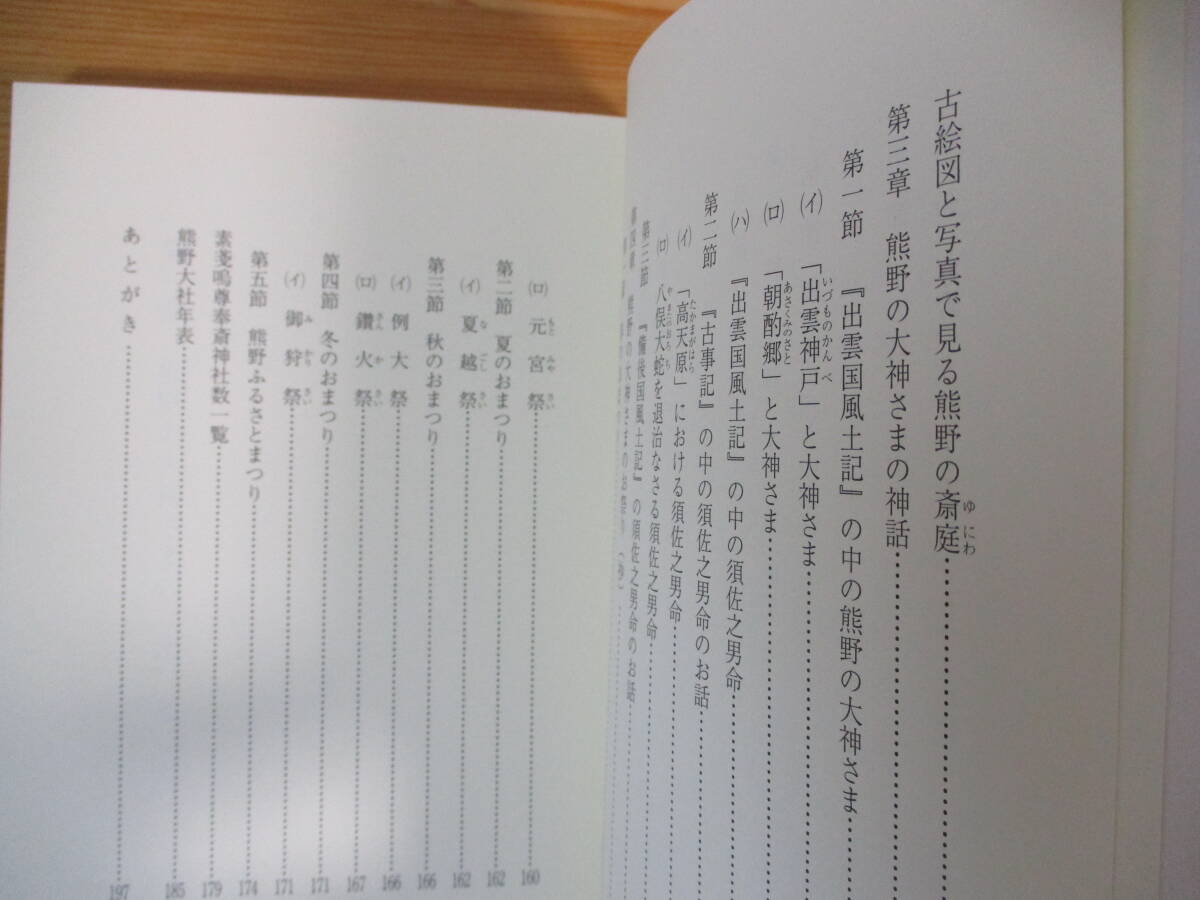 古絵図と写真で見る熊野の斎庭……
第三章　熊野の大神さまの神話……
第一節　『出雲国風土記』の中の熊野の大神さま……
(イ)　「出雲神戸」と大神さま……
(ロ)　「朝酌郷」と大神さま……
(ハ)　『出雲国風土記』の中の須佐之男命……
第二節　『古事記』の中の須佐之男命のお話……
(イ)　「高天原」における須佐之男命……
(ロ)　八俣大蛇を退治なさる須佐之男命……
第三節　『備後国風土記』の須佐之男命のお話……
第四章　熊野の大神さまのお祭り
(ロ)　元宮祭……160
第二節　夏のおまつり……162
(イ)　夏越祭……162
第三節　秋のおまつり……166
(イ)　例大祭……166
(ロ)　鑽火祭……167
第四節　冬のおまつり……171
(イ)　御狩祭……171
第五節　熊野ふるさとまつり……174
素戔嗚尊奉斎神社数一覧……179
熊野大社年表……185
あとがき……197